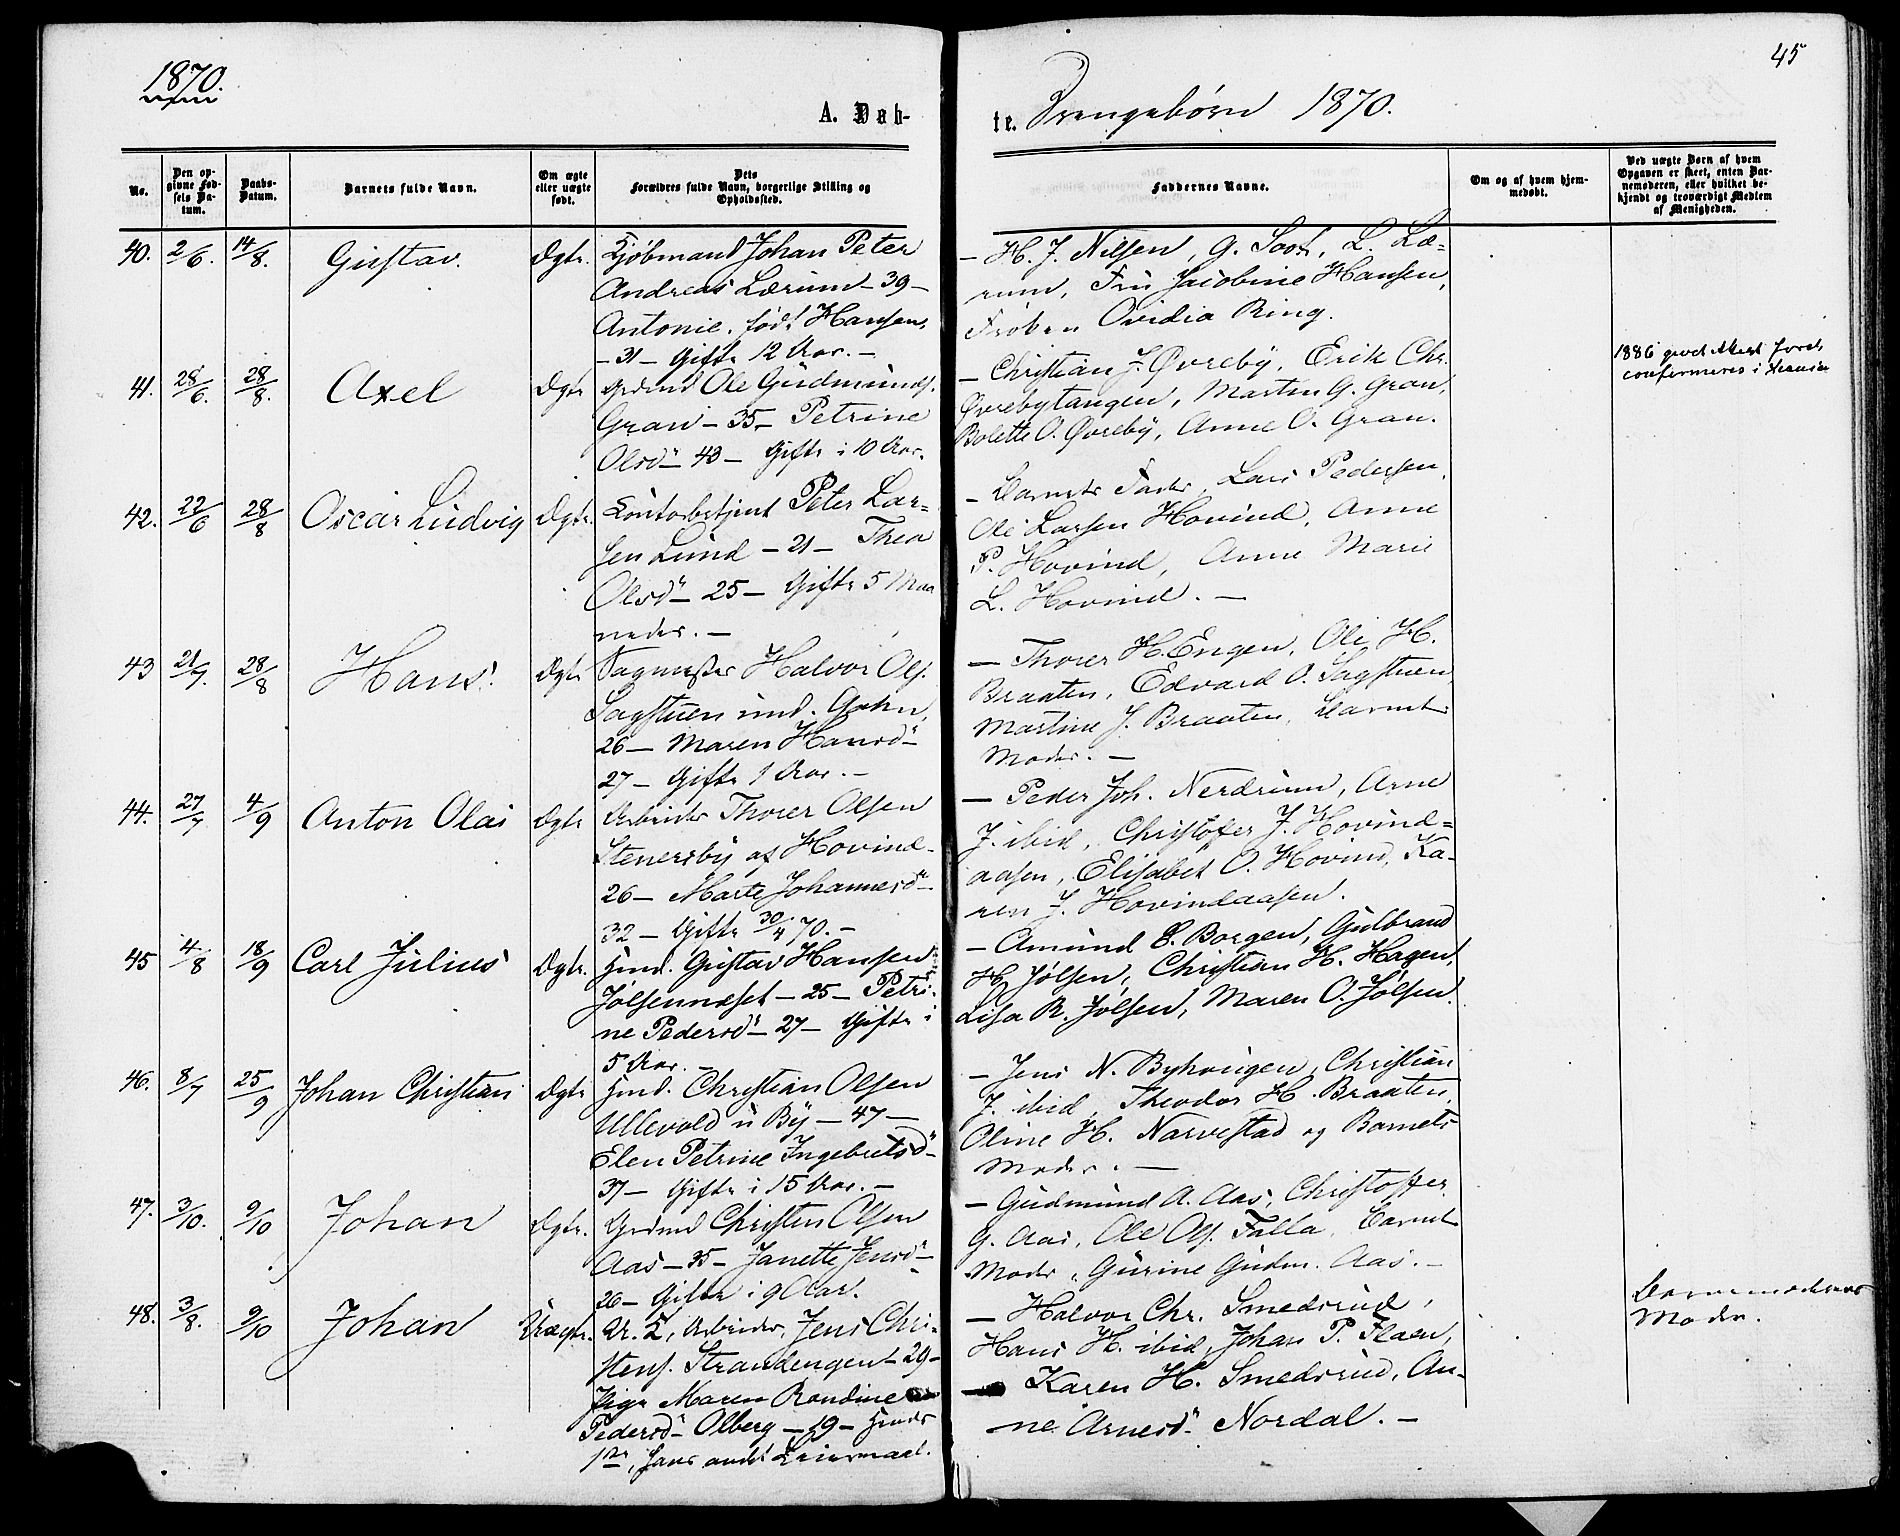 1870.
A. Døb-
No.
Den op-
givne Fød-
sels Da-
tum.
Daabs-
Datum.
Barnets fulde Navn.
Om ægte
eller uægte
født.
Dets
Forældres fulde Navn, borgerlige Stilling og
Opholdssted.
40. 2/6. 14/8. Gustav. Ægte. Kjøbmand Johan Peter
Andreas Lærum - 39 -
Antonie, født Hansen,
- 31 - Gifte 12 Aar. -
41. 28/6. 28/8. Axel Ægte Grdmd Ole Gudmunds.
Gran - 35 - Petrine
Olsd - 43 - Gifte i 10 Aar.
42. 22/6 28/8 Oscar Ludvig Ægte. Contorbetjent Peter Lar-
sen Lund - 21 - Thea
Olsd - 25 - Gifte 5 Maa
neder. -
43 21/7. 28/8 Hans. Ægte Sagmester Halvor Ols.
Sagstuen und. Gahn,
26 - Maren Hansd -
27 - Gifte 1 Aar. -
44. 27/7 4/9 Anton Olai Ægte Arbeider Thorer Olsen
Stenersby af Hovind -
26 - Marte Johannesd -
32 - Gifte 30/4 70. -
45 4/8 18/9 Carl Julius Ægte. Hmd. Gustav Hansen
Jølsennæset - 25 - Petri-
ne Pedersd - 27 - Gifte i
5 Aar. -
46. 8/7 25/9 Johan Christian Ægte Hmd. Christian Olsen
Ullevold u By - 47 -
Elen Petrine Ingebretsd -
37 - Gifte i 15 Aar. -
47. 3/10. 9/10 Johan Ægte. Grdmd Christen Olsen
Aas - 35 - Janette Jensd -
26 - Gifte i 9 Aar.
48. 3/8. 9/10 Johan Uægte. U. K., Arbeider, Jens Chri-
stens. Strandengen - 29 -
Pige Maren Randine
Pedersd Olberg - 19 - Hendes
1ste, hans andet Leiermaal.
45
te. Drengebørn 1870.
Faddernes Navne.
Om og af hvem hjem-
medøbt.
Ved uægte Børn af hvem
Opgaven er skeet, enten Bar-
nemoderen, eller hvilket be-
kjendt og troværdigt Medlem
af Menigheden.
- H. J. Nilsen, G. Soot, L. Læ-
rum, Fru Jacobine Hansen,
Frøken Ovidia Ring.
- Christian J. Øvreby, Erik Chr.
Øvrebytangen, Martin G. Gran,
Bolette O. Øvreby, Anne O. Gran.
1886
confirmeres i
- Barnets Fader, Lars Pedersen,
Ole Larsen Hovind, Anne
P. Hovind, Anne Marie
L. Hovind. -
- Thorer H. Engen, Ole H.
Braaten, Edvard O. Sagstuen,
Martine J. Braaten, Barnets
Moder. -
- Peder Joh. Nerdrum, Arne
J. ibid, Christoffer J. Hovind-
aasen, Elisabet O. Hovind, Ka-
ren J. Hovindaasen.
- Amund E. Borgen, Gulbrand
H. Jølsen, Christian H. Hagen,
Lisa R. Jølsen, Maren O. Jølsen.
- Jens N. Byhøigen, Christian
J. ibid, Theodor H. Braaten,
Oline H. Narvestad og Barnets
Moder. -
- Gudmund A. Aas, Christoffer
G. Aas, Ole Ols. Falla, Barnets
Moder, Gurine Gudm. Aas. -
- Halvor Chr. Smedsrud,
Hans H. ibid, Johan P. Flaen,
Karen H. Smedsrud, An-
ne Arnesd Nordal. -
Barnemoderens
Moder.